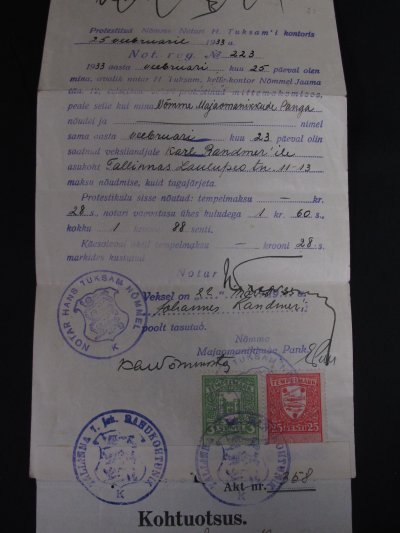 Protestitud Nõmme Notari H. Tuksam'i kontoris
25 veebruaril 1933 a.
Not. reg. № 223
1933 aasta veebruari kuu 25 päeval olen
mina, avalik notar H. Tuksam, kelle kontor Nõmmel Jaama
tän. 12, käesoleva veksli protestinud mittemaksmises,
peale selle kui mina Nõmme Majaomanikkude Panga
nõudel ja nimel
sama aasta veebruari kuu 23 päeval olin
saatnud veksliandjale Karl Randmer'ile
asukoht Tallinnas Laulupeo tn. 11-13
maksu nõudmise, kuid tagajärjeta.
Protestikulu sisse nõutud: tempelmaksu — kr.
28 s. notari varvatasu ühes kuludega 1 kr. 60 s.,
kokku 1 krooni 88 senti.
Käesoleval aktil tempelmaksu — krooni 28 s.
markides kustutud
Notar
Veksel on 22
Johannes Randmer'i
poolt tasutud.
Nõmme
Majaomanikkude Pank
NOTAR HANS TUKSAM NÕMMEL
K
TEMPELMARK
TEMPELMARK
25 EESTI 25
TALLINNA 7. jsk. RAHUKOHTUNIK
K
TALLINNA 7. jsk. RAHUKOHTUNIK
K
Akt nr. 358
Kohtuotsus.